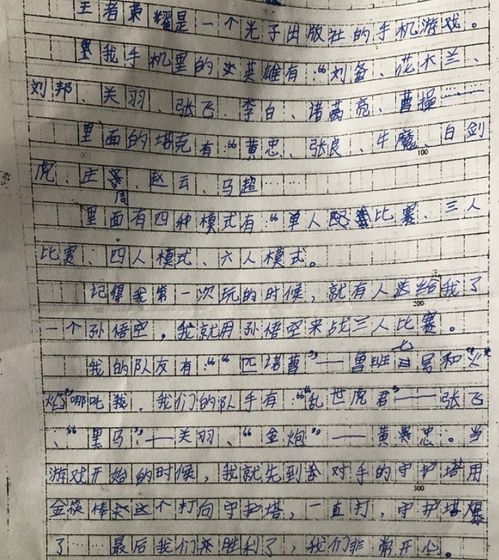 王者荣耀是一个光子出版社的手机游戏。
我手机里的英雄有:“刘备、花木兰、
刘邦、关羽、张飞、李白、诸葛亮、曹操……
里面的坦克有“黄忠、张良、牛魔、白剑
虎、庄周、赵云、马超……
里面有四种模式有“单人比赛、三人
比赛、四人模式、六人模式。
记得我第一次玩的时候,就有人送给我了
一个孙悟空,我就用孙悟空来战三人比赛。
我的队友有:“匹诺曹”——鲁班七号和“火
焰”哪吒,我们的队手有:“乱世虎君”——张飞
、“黑马”——关羽、“金炮”——黄忠。当
游戏开始的时候,我就先到对手的守护塔用
金箍棒这个打向守护塔,一直打,守护塔爆
了……最后我们来胜利了,我们非常开心。
100
200
300